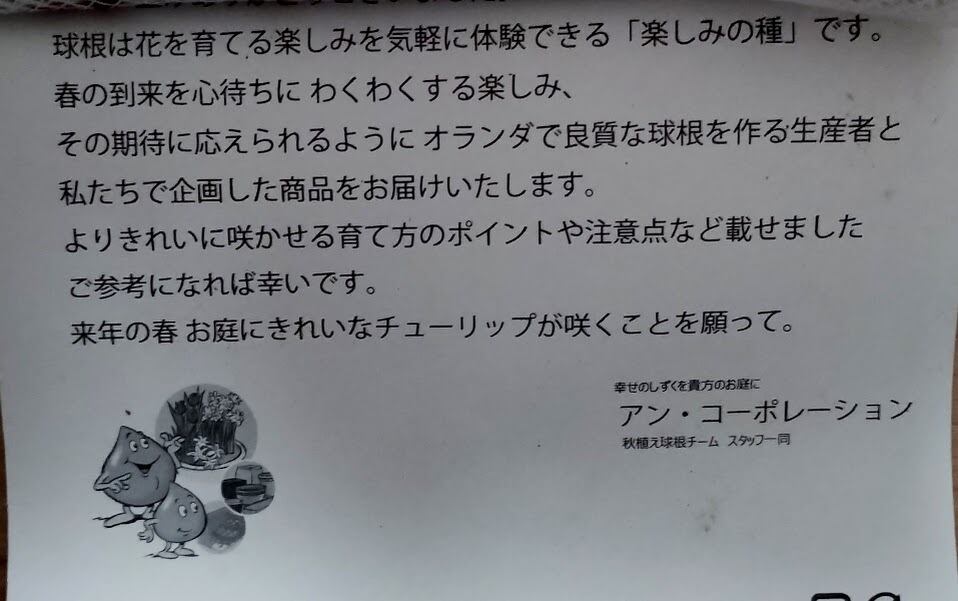 球根は花を育てる楽しみを気軽に体験できる「楽しみの種」です。
春の到来を心待ちに わくわくする楽しみ、
その期待に応えられるように オランダで良質な球根を作る生産者と
私たちで企画した商品をお届けいたします。
よりきれいに咲かせる育て方のポイントや注意点など載せました
ご参考になれば幸いです。
来年の春 お庭にきれいなチューリップが咲くことを願って。
幸せのしずくを貴方のお庭に
アン・コーポレーション
秋植え球根チーム スタッフ一同